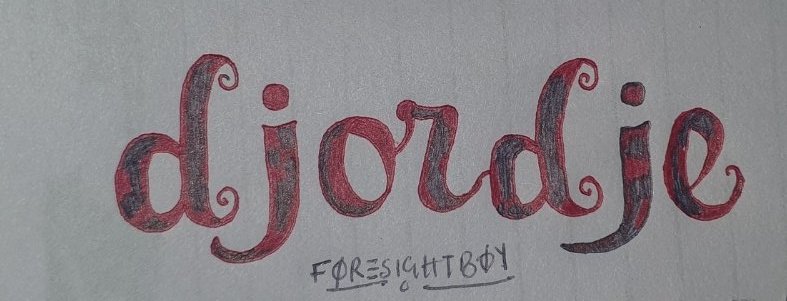 djordje
FØRESIGHTBØY